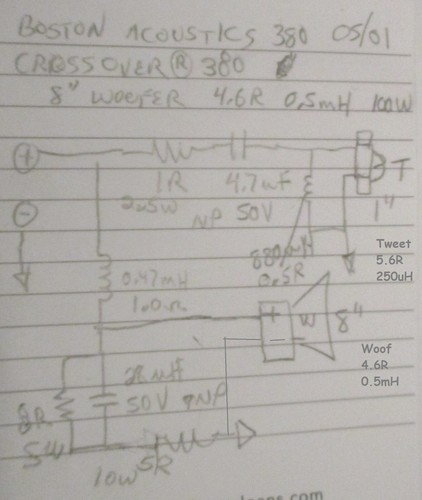 BOSTON ACOUSTICS 380 05/01
CROSSOVER ® 380
8" WOOFER 4.6R 0.5mH 100W
+
T
1R 4.7uF
2.5W NP 50V
1"
-
Tweet
5.6R
250uH
0.5R
0.47mH
1.0R
+ W 8"
Woof
4.6R
0.5mH
8R 50V NP
5W
10W 5R